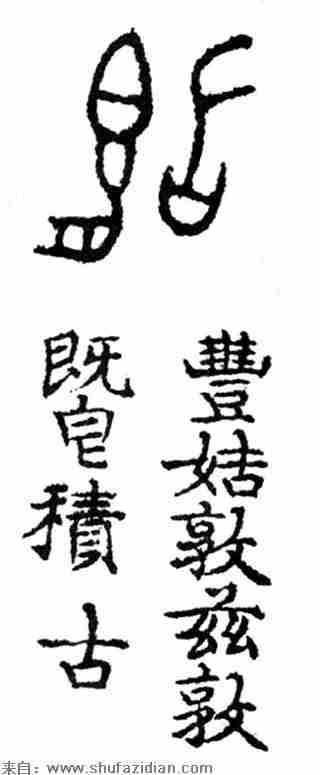 豐姞敦兹敦
既皀積古
来自：www.shufazidian.com